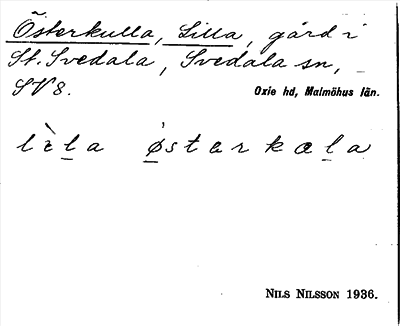 Österkulla, Lilla, gård i
St. Svedala, Svedala sn,
SV8.
Oxie hd, Malmöhus län.
lìl̲a ø̲stərkæl̲a
NILS NILSSON 1936.